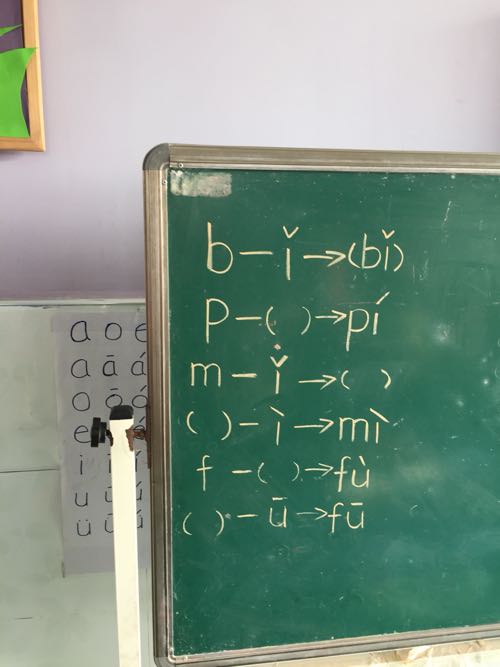 b — ǐ → (bǐ)
p — ( ) → pí
m — ǐ → ( )
( ) — ì → mì
f — ( ) → fù
( ) — ū → fū
a o e
a ā á
o ō ó
e
i
u
ü